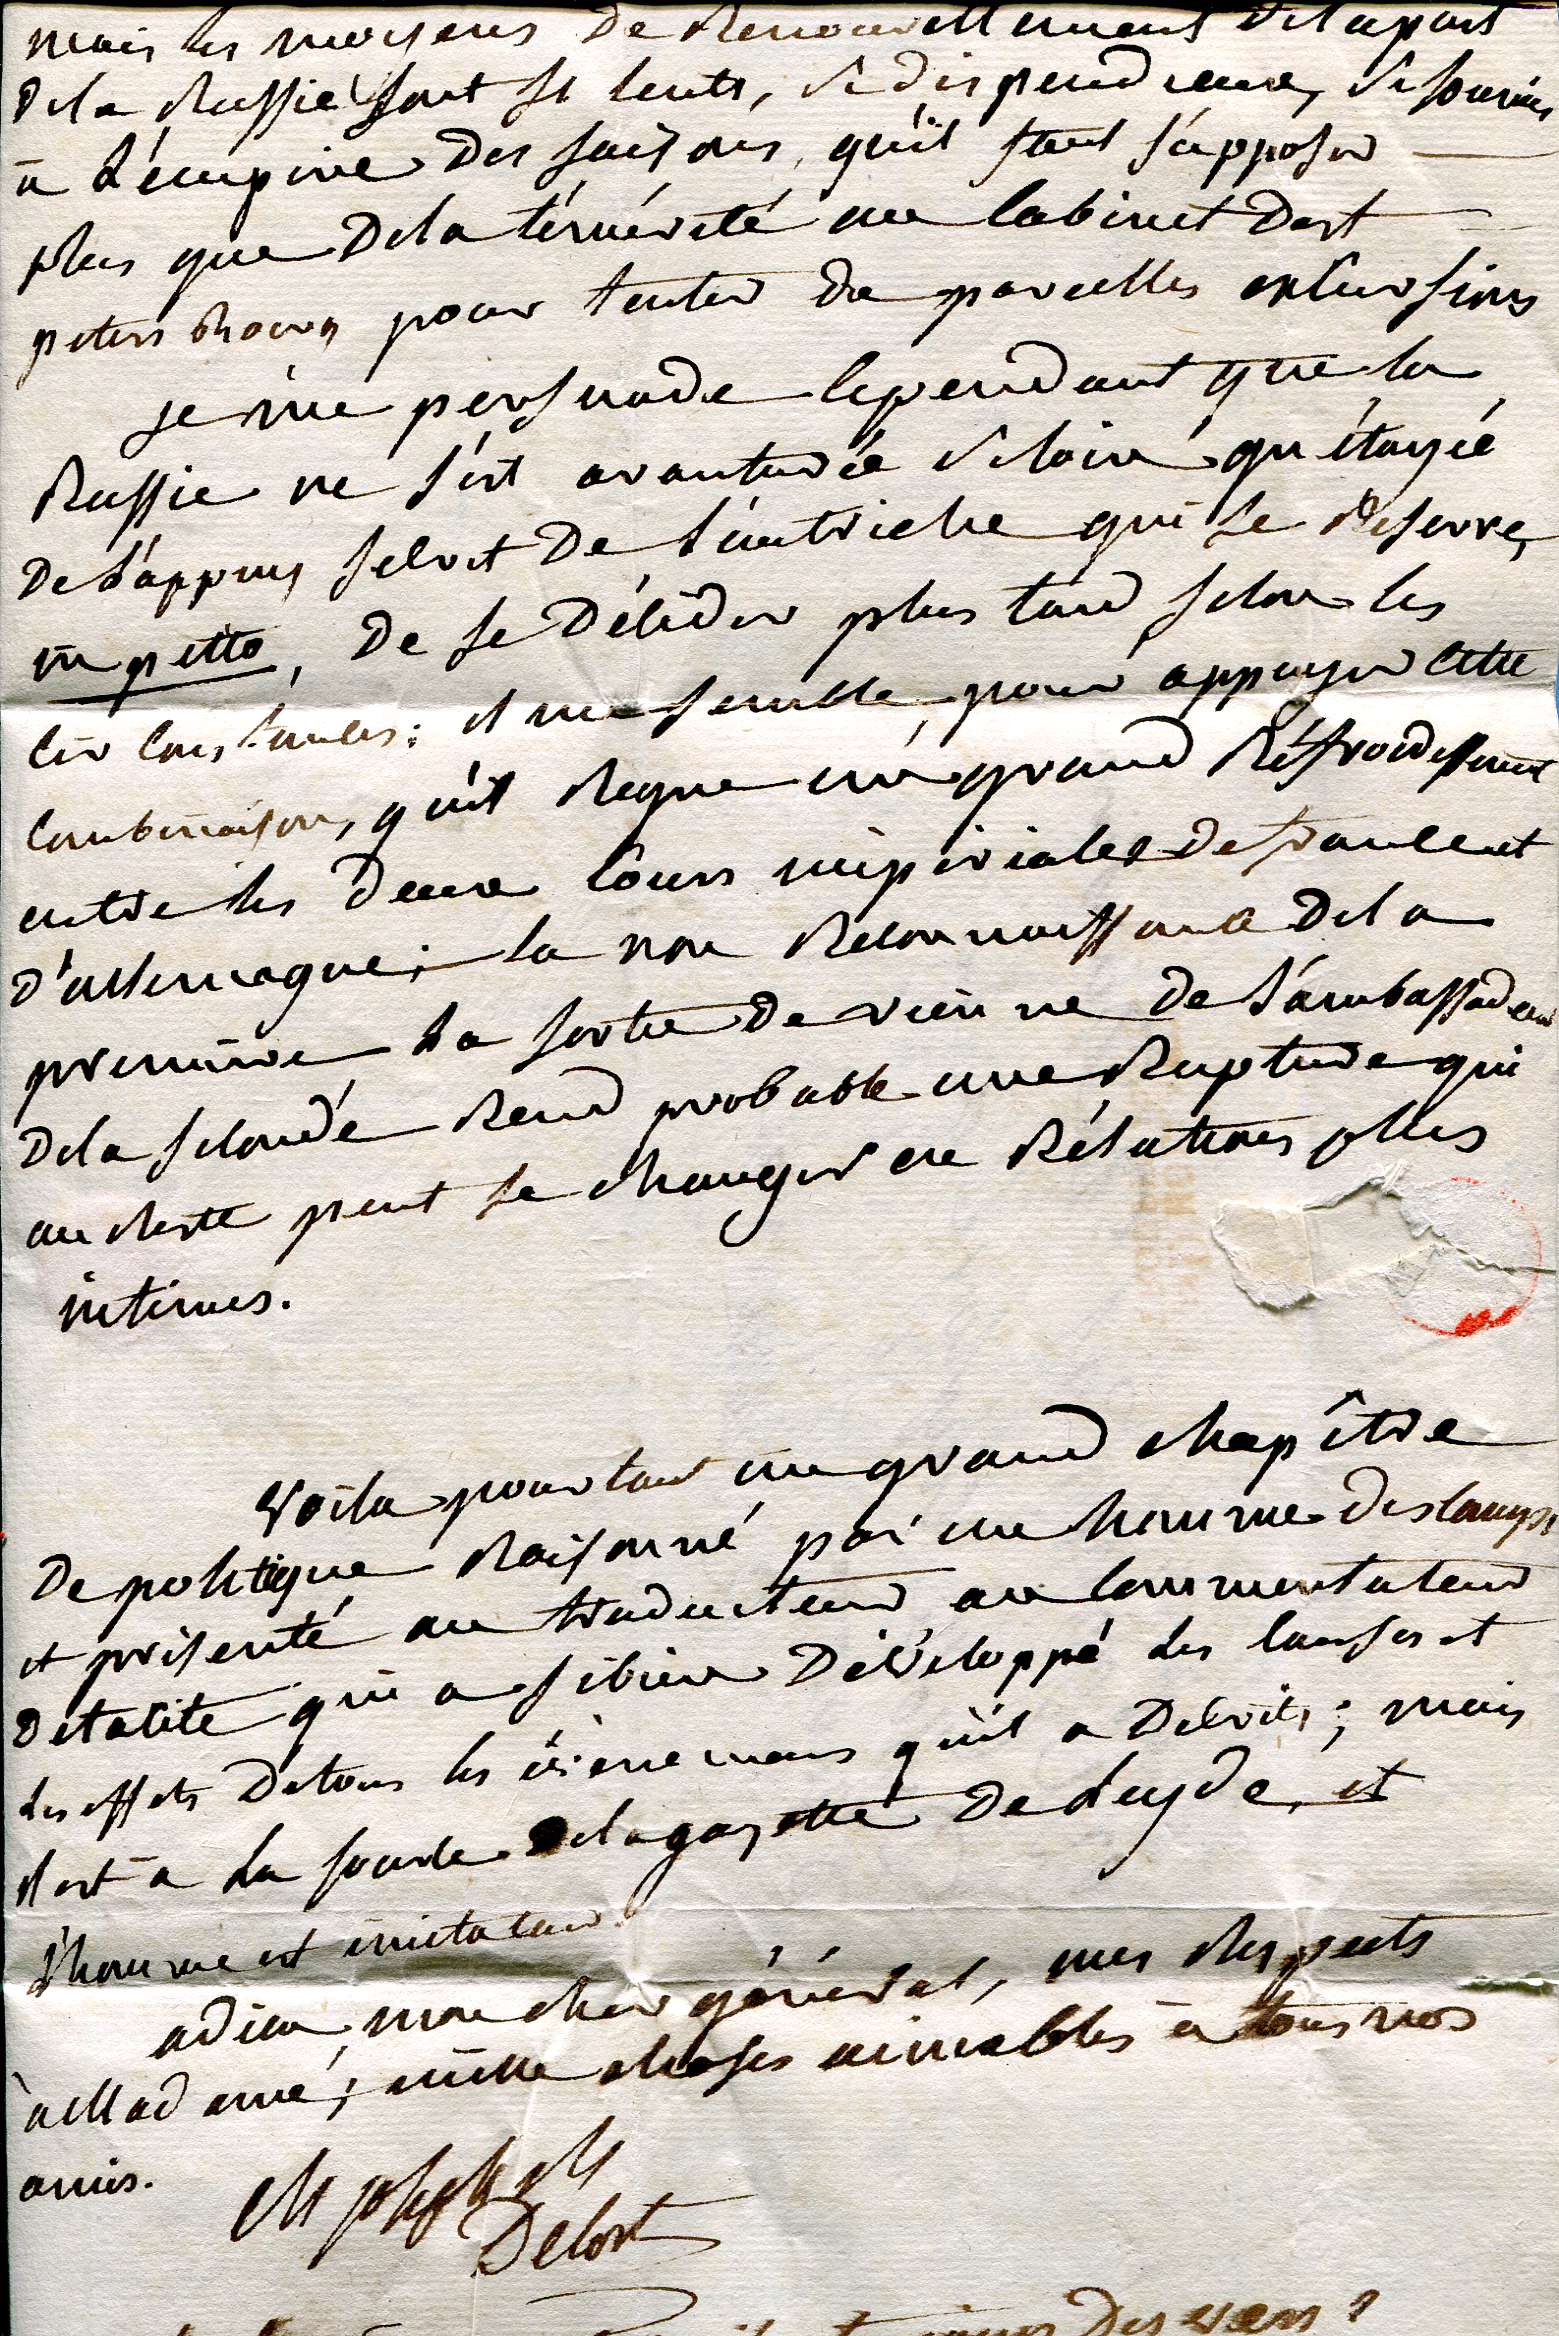 mais les moyens de Renouvellement de la part
de la Russie sont si lents, si dispendieux, si soumis
a L'empire des saisons, qu'il faut s'upposer
plus que de la témérité au Cabinet de st
petersbourg pour tenter de pareilles exCursions
je me persuade Cependant que la
Russie ne s'est avanturée si loin qu'étayée
de L'appuy seCret de L'autriche qui se Reserve,
in petto, de se déCider plus tard selon les
CirConstanCes: il me semble, pour appuyer Cette
Combinaison, qu'il Regne un grand Réffroidissement
entre les deux Cours impériales de franCe et
d'allemagne; la non ReConnoissanCe de la
premiere La sortie de vienne de L'ambassadeur
de la seConde Rend probable une Rupture qui
au Reste peut se Changer en Rélations plus
intimes.
Voila pourtant un grand Chapître
de politique Raisonné par un homme des Camps
et présenté au traducteur au Commentateur
de taCite qui a si bien développé Les Causes et
Les effets de tous les évènemens qu'il a déCrits; mais
il est a La sourCe de la gazette de Leyde, et
L'homme est imitateur.
adieu, mon Cher général, mes Respects
à Madame; mille Choses aimables à tous nos
amis.
DeLort
des vers?